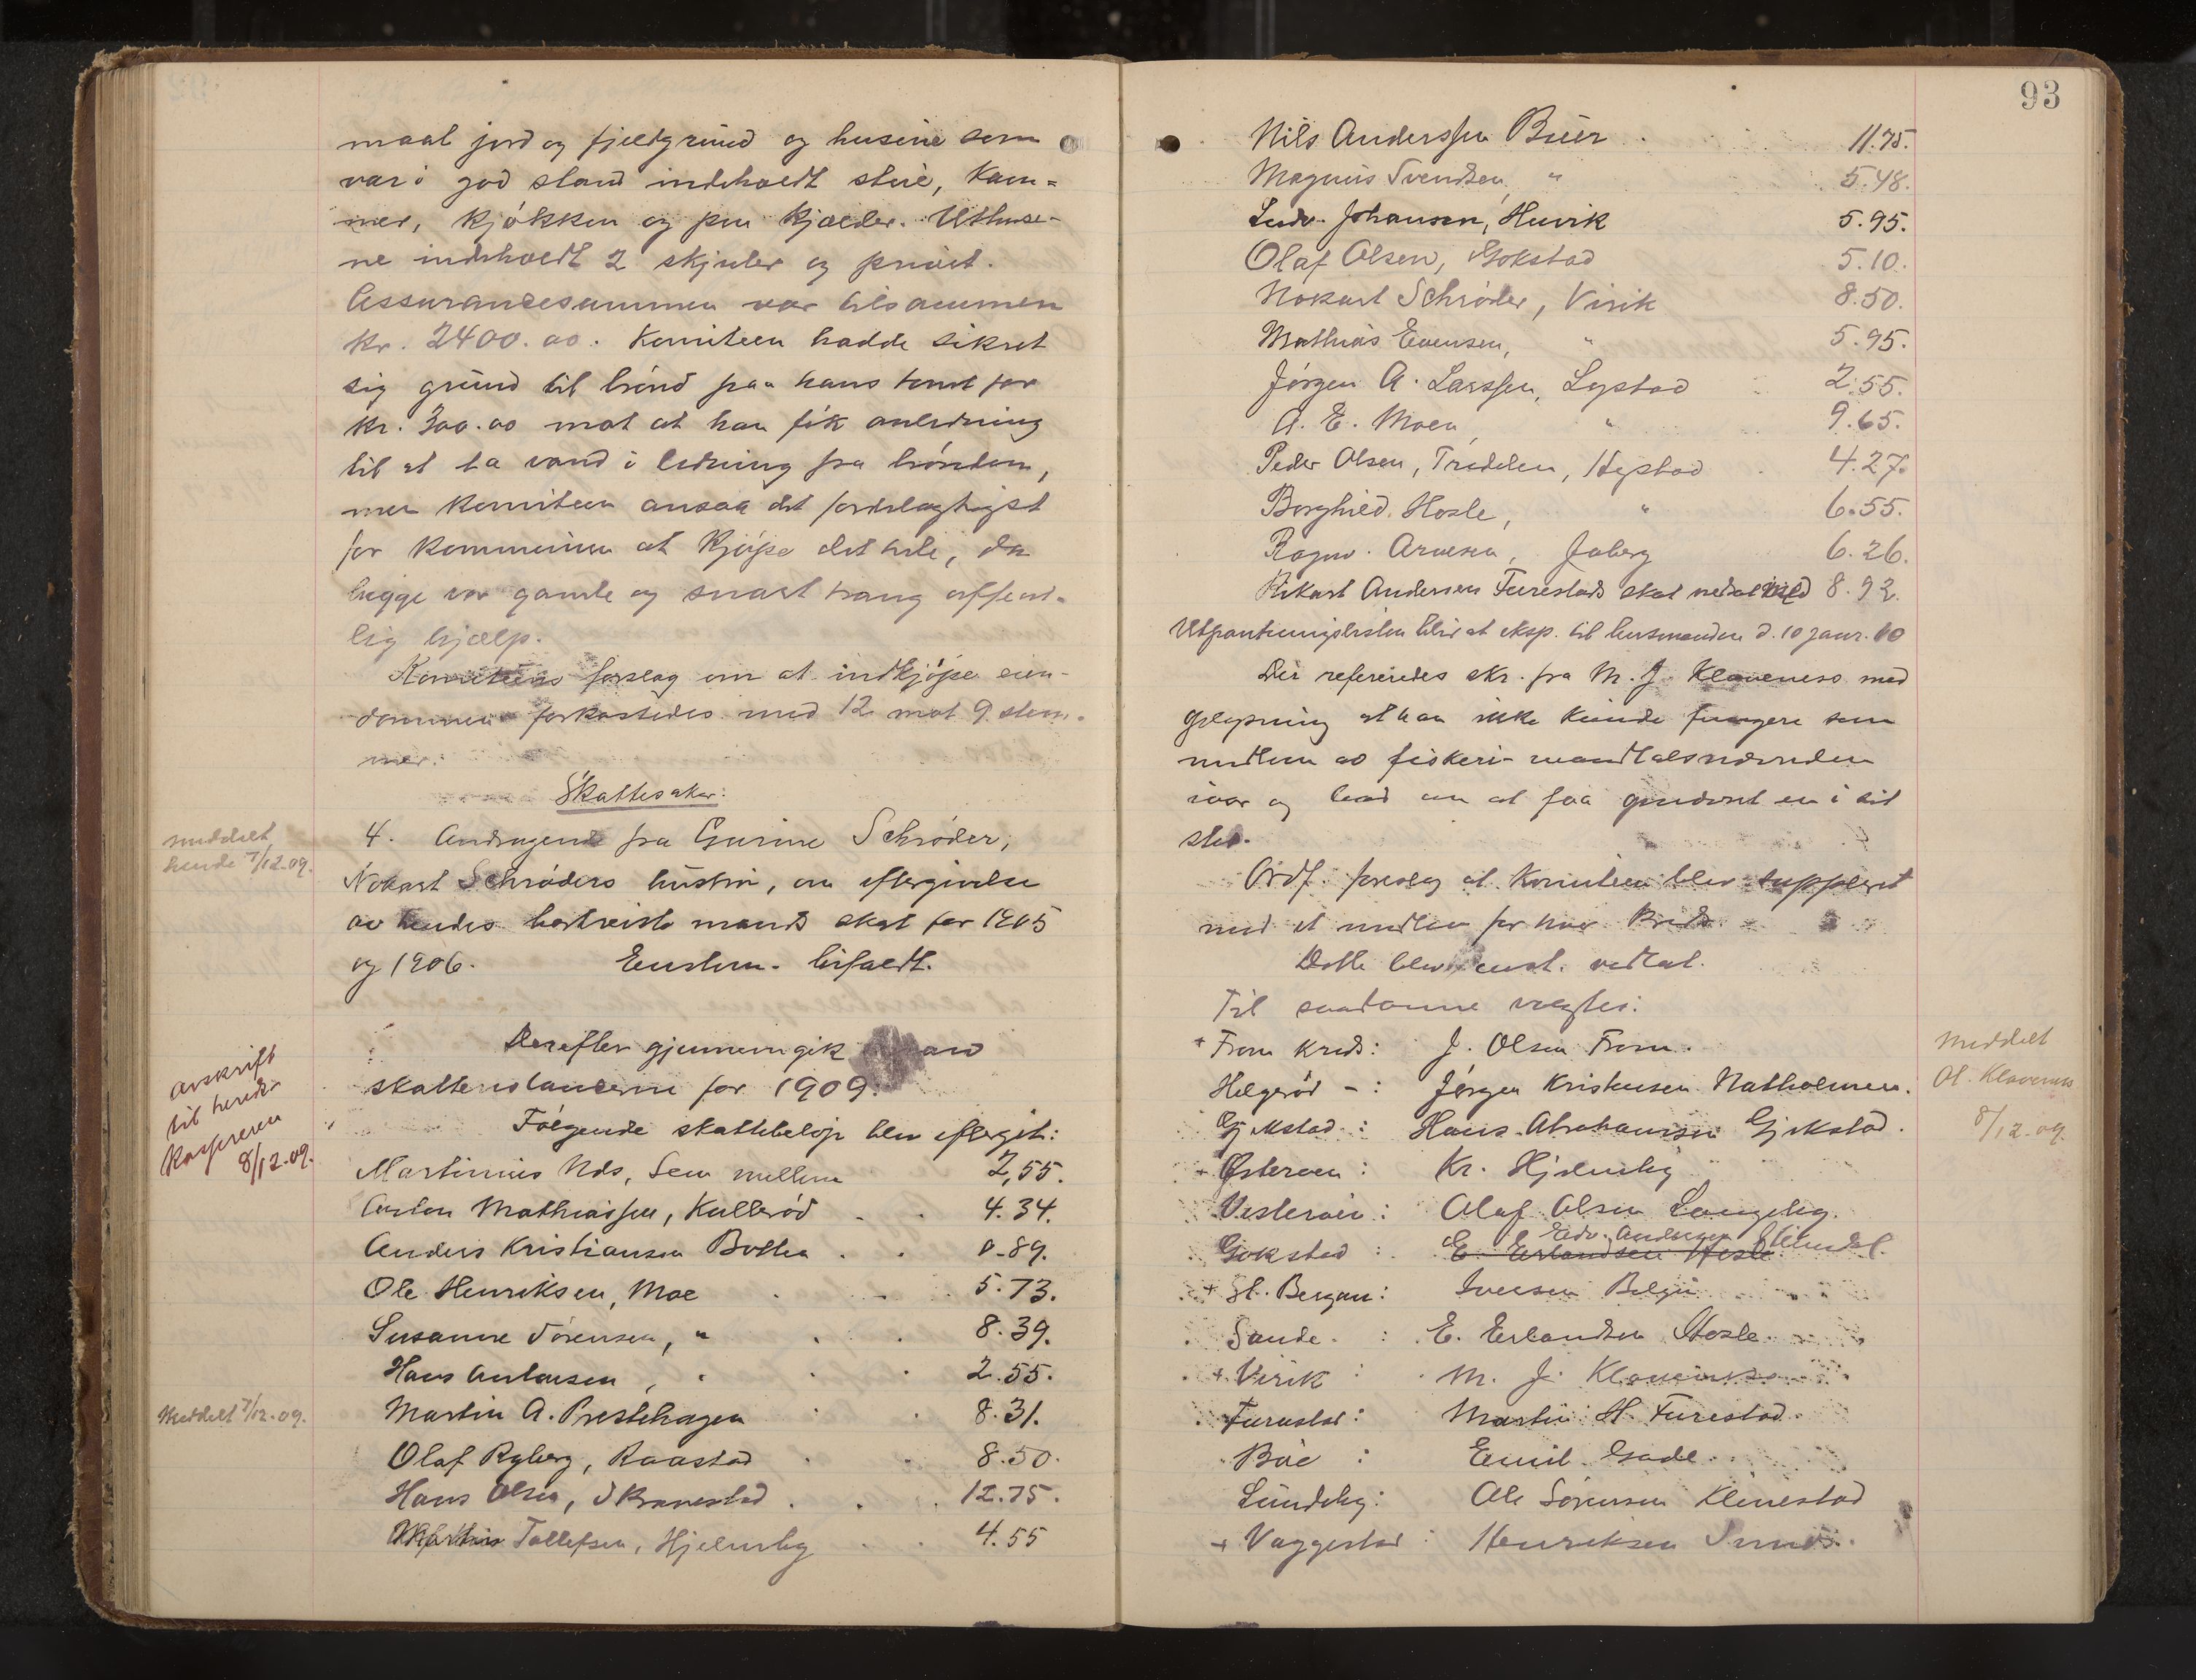 maal jord og fjeldgrund og husene som
var i god stand indeholdt stue, kam=
mer, kjøkken og pen kjælder. Uthuse-
ne indeholdt 2 skjuler og privet.
Assurancesummen var tilsammen
kr. 2400.00. Komiteen hadde sikret
sig grund til brønd paa hans tomt for
kr. 300.00 mot at han fik anledning
til at ta vand i ledning fra brønden,
men komiteen ansaa det fordelagtigst
for kommunen at kjøpe det hele, da
begge var gamle og snart trang offent-
lig hjælp.
Komiteens forslag om at indkjøpe eien-
dommen forkastedes med 12 mot 9 stem-
mer.
Skattesaker:
meddelt
hende 7/12-09.
4. Andragende fra Gurine Schrøder,
Nokart Schrøders hustru, om eftergivelse
av hendes bortreiste mands skat for 1905
og 1906. Enstem. bifaldt.
Derefter gjennemgik
skatterestancerne for 1909.
avskrift
til herreds
kassereren
8/12-09.
Følgende skattebeløp blev eftergit:
Martinius Nds, Sem mellem 2,55.
Anton Mathiassen, Kullerød 4.34.
Anders Kristiansen Botten 0-89.
Ole Henriksen, Moe 5.73.
Susanne Sørensen, " 8.39.
Hans Antonsen, " 2.55.
Meddelt 7/12-09.
Martin A. Prestehagen 8.31.
Olaf Ryberg, Raastad 8.50.
Hans Olsen, Skravestad 12.75.
Mathias Tollefsen, Hjelmby 4.55
93
Nils Anderssen Buer 11.75.
Magnus Svendsen, " 5.48.
Ludv. Johansen, Huvik 5.95.
Olaf Olsen, Gokstad 5.10.
Nokart Schrøder, Virik 8.50.
Mathias Evensen, " 5.95.
Jørgen A. Larssen, Lystad 2.55.
A. E. Moen, " 9.65.
Peder Olsen, Tredelen, Hystad 4.27.
Borghild Hosle, " 6.55.
Ragnv. Arnesen, Jaberg 6.26.
Rikart Andersen Furestads skat nedsat med 8.92.
Utpantningslisten blir at eksp. til lensmanden d. 10 janr. 10
Der refereredes skr. fra M. J. Klaveness med
oplysning at han ikke kunde fungere som
medlem av fiskeri-mandtalsnævnden
iaar og bad om at faa en i sit
sted.
Ordf. foreslog at komiteen blev suppleret
med et medlem for hver kreds.
Dette blev enst. vedtat.
Til saadanne valgtes:
+ Fram kreds: J. Olsen Fram.
Helgerød -: Jørgen Kristensen Natholmen.
Gjekstad : Hans Abrahamsen Gjekstad.
+ Østerøen : Kr. Hjelmby
Vesterøen : Olaf Olsen Langeby.
Edv. Andersen
Gokstad : E. Erlandsen Hosle
+ St. Bergan: Iversen Bolgen
Sande : E. Erlandsen Hosle.
+ Virik : M. J. Klaveness
Furustad : Martin H. Furestad.
Bue : Emil Gade.
Lundeby: Ole Sørensen Klinestad
+ Vaggestad : Henriksen Sunds.
Meddelt
Ol. Klaveness
8/12-09.